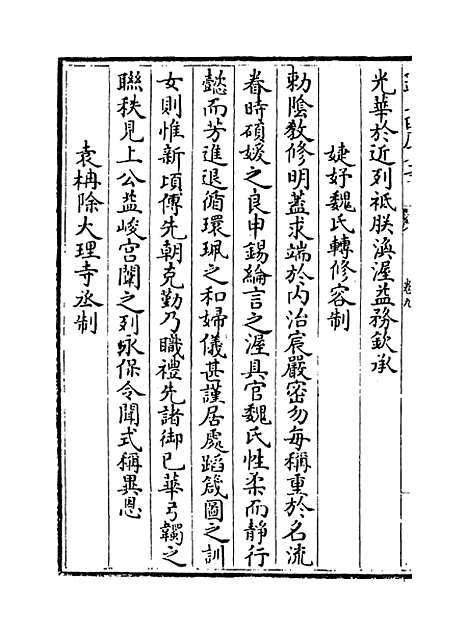 光華於近列祗朕渙渥益務欽承
婕妤魏氏轉修容制
勅陰敎修明蓋求端於內治宸嚴密勿每稱重於名流
眷時碩媛之良申錫綸言之渥具官魏氏性柔而靜行
懿而芳進退循環珮之和婦儀甚謹居處蹈箴圖之訓
女則惟新頃傅先朝克勤乃職禮先諸御已華弓韣之
聯秩見上公益峻宮闈之列永保令聞式稱異恩
袁冉除大理寺丞制